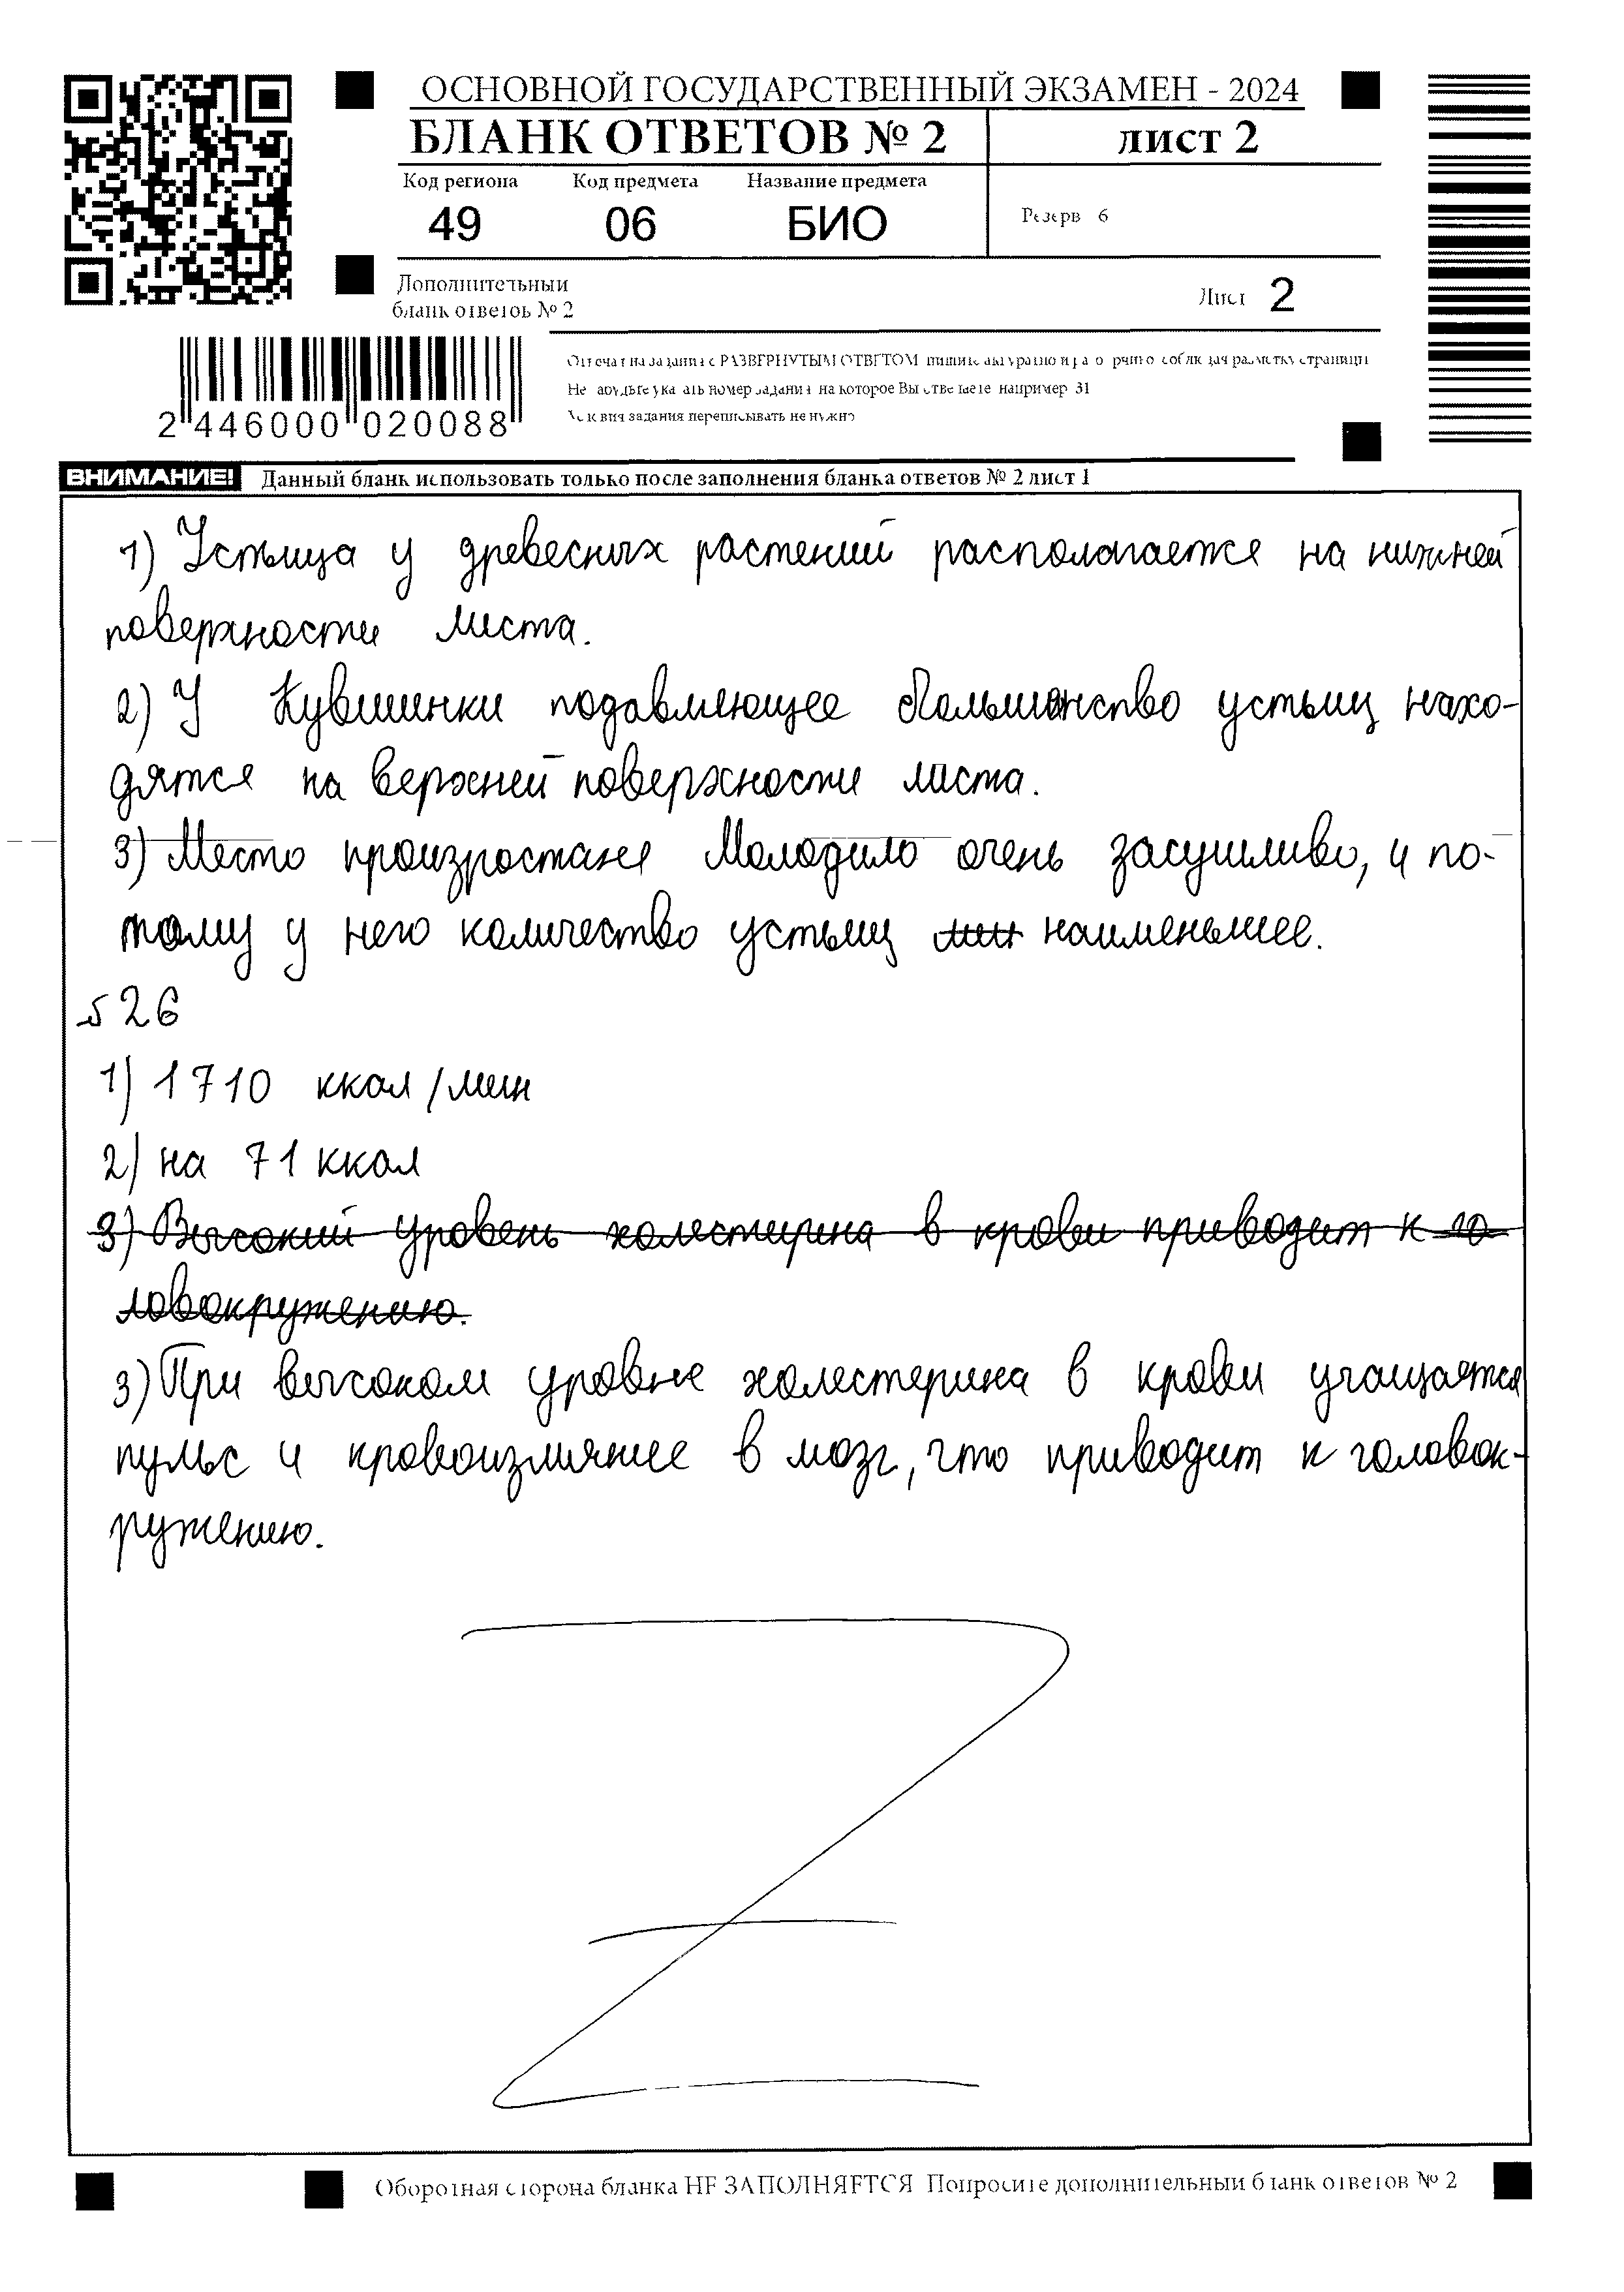 ОСНОВНОЙ ГОСУДАРСТВЕННЫЙ ЭКЗАМЕН - 2024
БЛАНК ОТВЕТОВ № 2 лист 2
Код региона Код предмета Название предмета
49 06 БИО
Резерв 6
Дополнительный
бланк ответов № 2
Лист 2
2 446000 020088
Отвечая на задания с РАЗВЕРНУТЫМ ОТВЕТОМ пишите аккуратно и разборчиво соблюдая разметку страницы
Не забудьте указать номер задания на которое Вы отвечаете например 31
Условия задания переписывать не нужно
ВНИМАНИЕ! Данный бланк использовать только после заполнения бланка ответов № 2 лист 1
1) Устьица у древесных растений располагаетсе на нижней
поверхности листа.
2) У Кувшинки подавляющее большинство устьиц нахо-
дятсе на верхней поверхности листа.
3) Место произростане Молодило очень засушливо, и по-
тому у него количество устьиц мин наименьшее.
№ 26
1) 1710 ккал/мин
2) на 71 ккал
3) Высокий уровень холестирина в крови приводит к го
ловокружению.
3) При высоком уровне холестерина в крови учащаятся
пульс и кровоизлияние в мозг, что приводит к головок-
ружению.
Оборотная сторона бланка НЕ ЗАПОЛНЯЕТСЯ Попросите дополнительный бланк ответов № 2